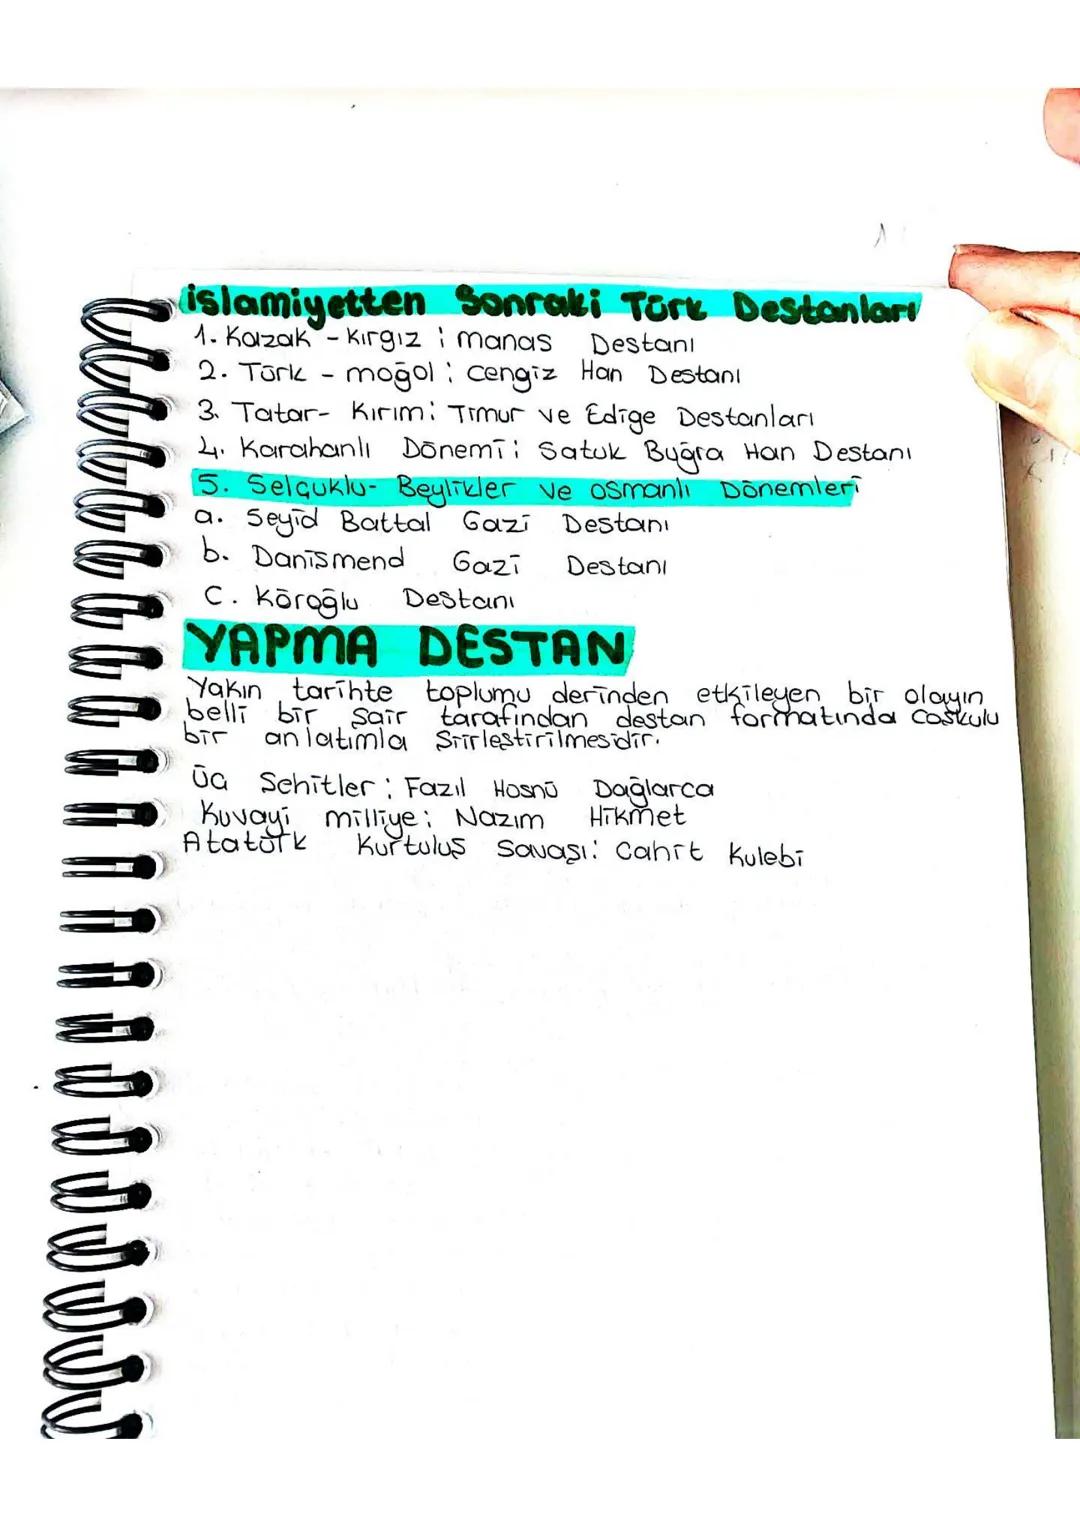 islamiyetten Sonraki Türk Destanları
1. Kazak - Kırgız : manas Destanı
2. Türk - moğol : cengiz Han Destanı
3. Tatar- Kırım: Timur ve Edige Destanları
4. Karahanlı Dönemi: Satuk Buğra Han Destanı
5. Selçuklu- Beylikler ve osmanlı Dönemleri
a. Seyid Battal Gazi Destanı
b. Danismend Gazi Destanı
C. Köroğlu Destanı
YAPMA DESTAN
Yakın tarihte toplumu derinden etkileyen bir olayın
belli bir sair tarafından destan formatında coskulu
bir anlatımla siirlestirilmesidir.
Üç Sehitler : Fazıl Hüsnü Dağlarca
Kuvayi milliye: Nazım Hikmet
Atatürk Kurtuluş Savaşı: Cahit Kulebi